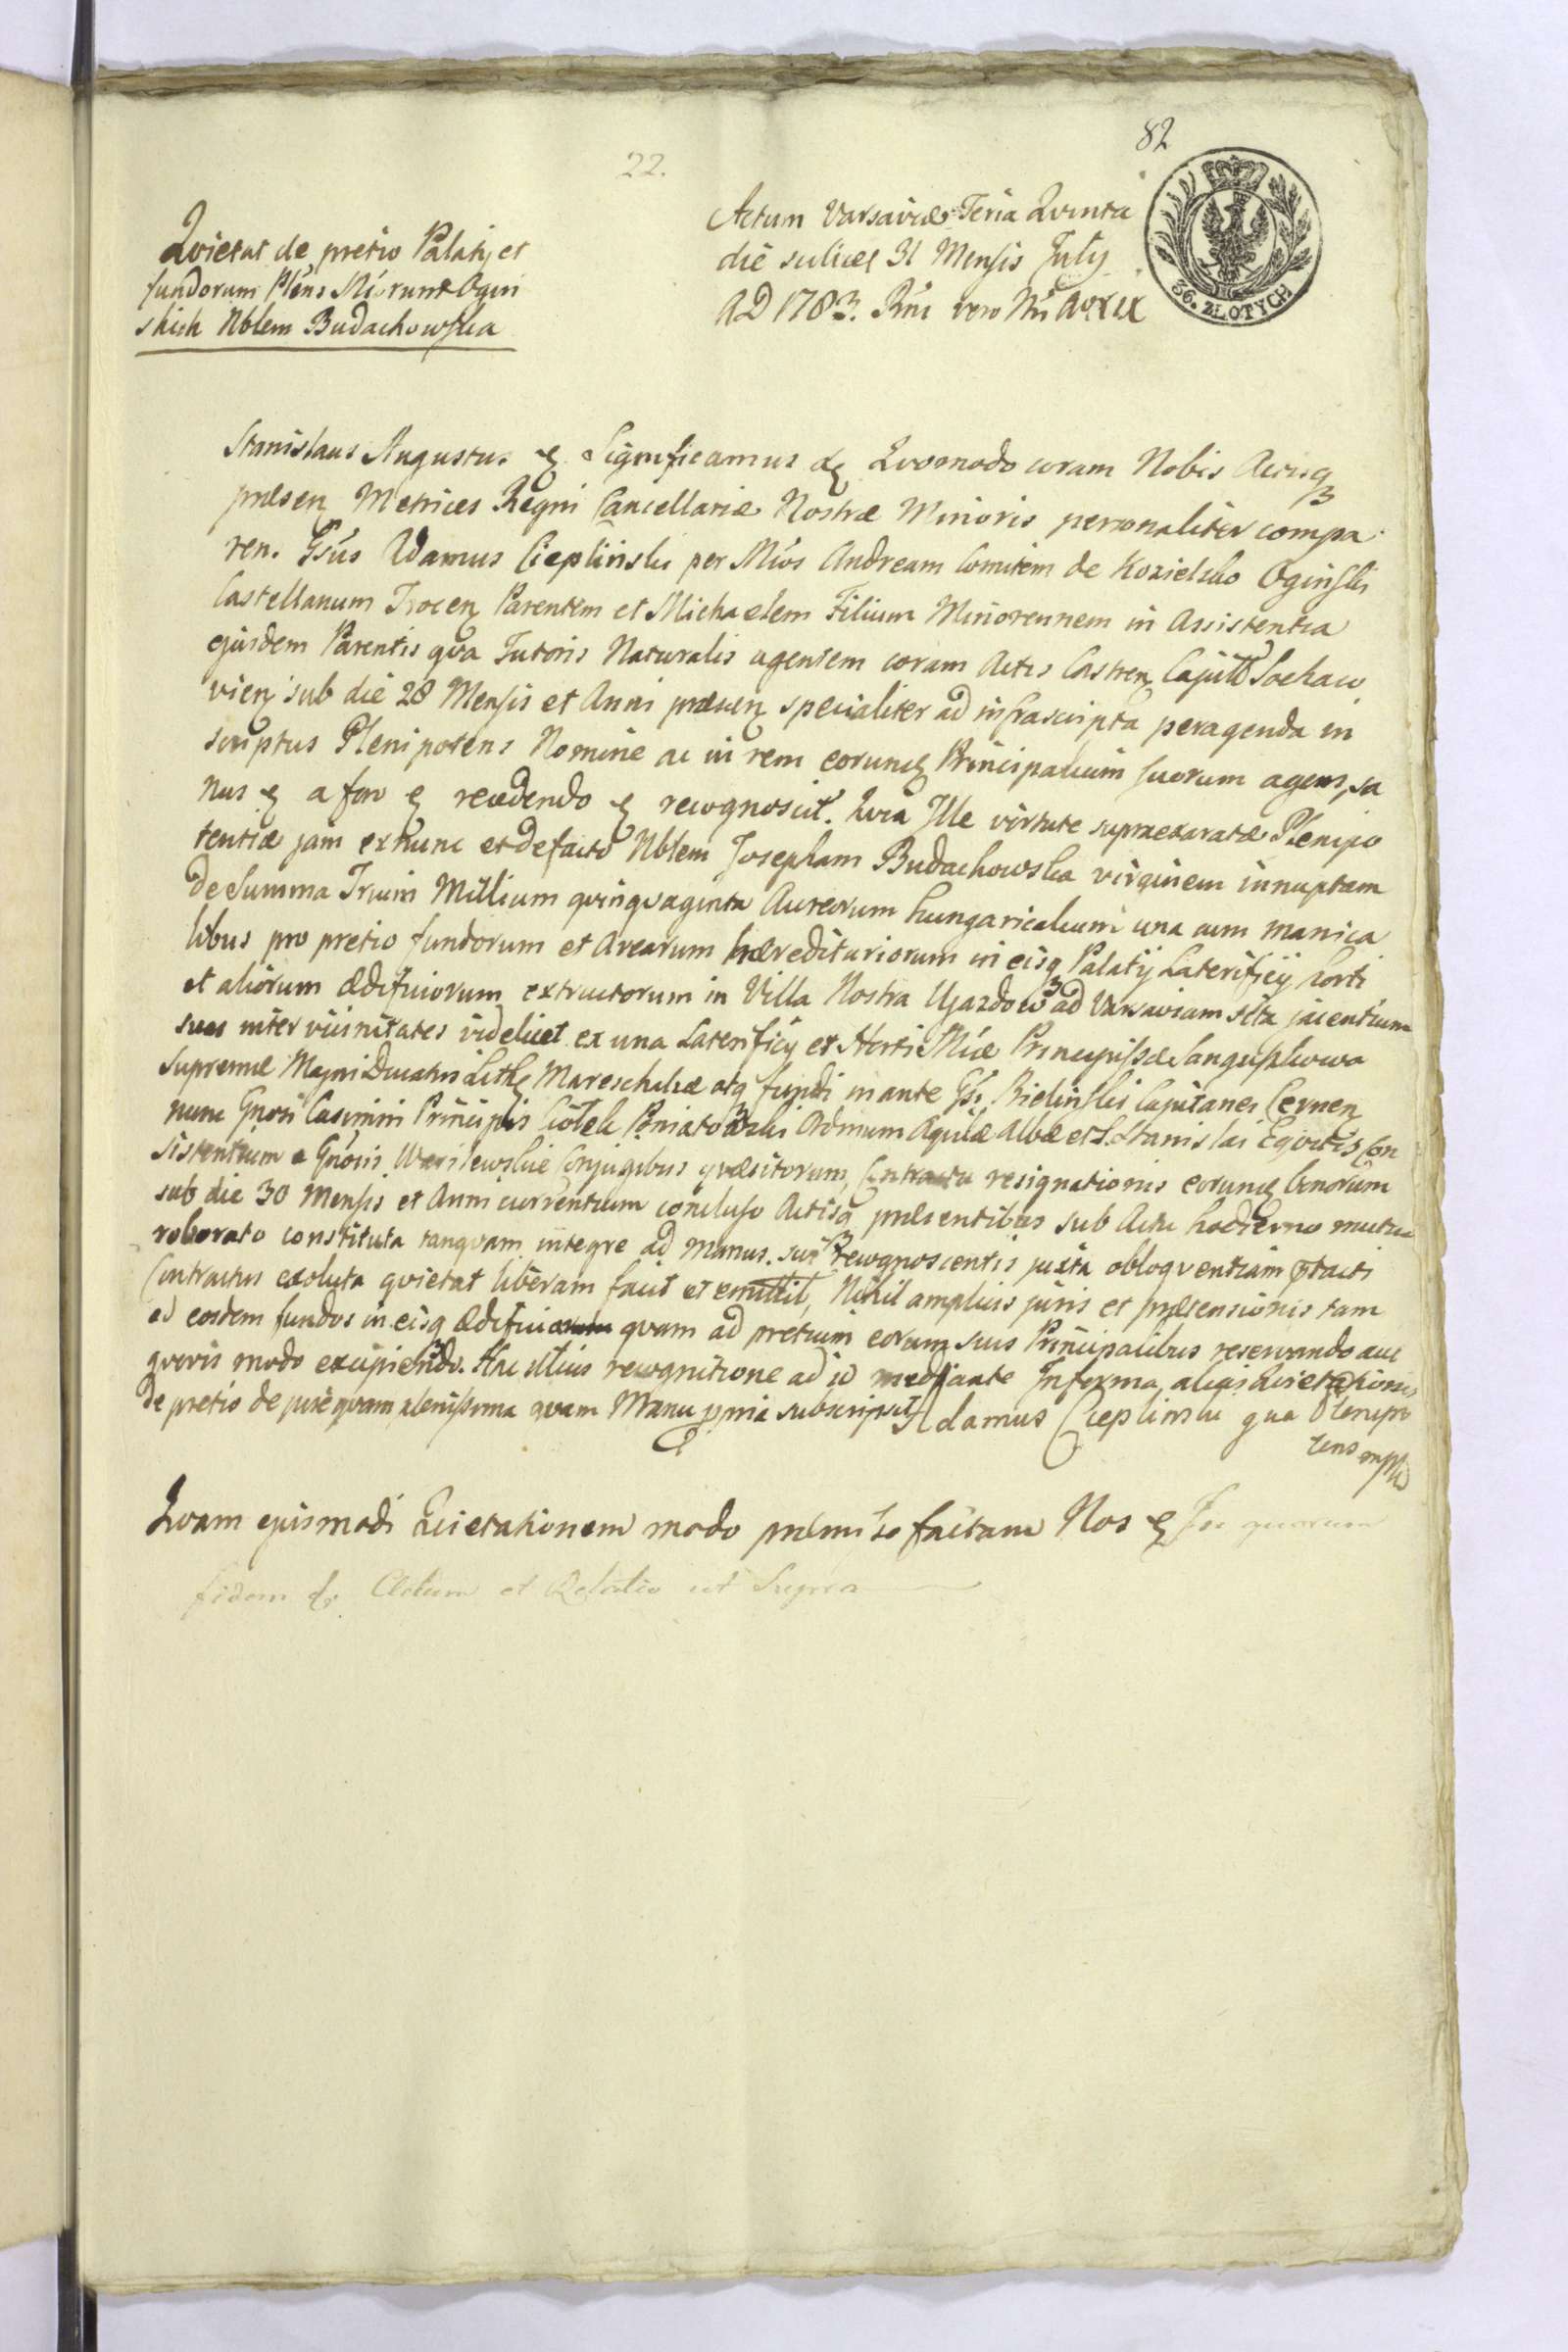 82
22.
Actum Varsaviæ Feria Qvinta
die scilicet 31 Mensis July
AD 1783. Rni vero Nri
36. ZŁOTYCH
Qvietat de pretio Palatij et
fundorum Plens Mcorum Ogin
skich Nblem Budachowska
Stanislaus Augustus Significamus Qvomodo coram Nobis Actisq
præsen Metrices Regni Cancellariæ Nostræ Minoris personaliter compa
ren. Gsus Adamus Cieplinski per Mcos Andream Comitem de Kozielsko Oginski
Castellanum Trocen Parentem et Michaelem Filium Minorennem in Assistentia
ejusdem Parentis qva Tutoris Naturalis agentem coram Actis Castren Capitl Sochaw
vien sub die 28 Mensis et Anni præsen specialiter ad infrascripta peragenda in
scriptus Plenipotens Nomine ac in rem eorund Principalium suorum agens, sa
nus a foro recedendo recognovit. Qvia Ille virtute supraexaratæ Plenipo
tentiæ jam ex nunc et defacto Nblem Josepham Budachowska virginem innuptam
de Summa Trium Millium qvinqvaginta Aureorum hungaricalium una cum manica
libus pro pretio fundorum et Arearum hæreditariorum in eisq Palatij Laterificij horti
et aliorum ædificiorum extructorum in Villa Nostra Ujazdow ad Varsaviam sita jacentium
suas inter vicinitates videlicet ex una Laterificij et Horti Mcæ Principissæ Sanguszkowa
Supremæ Magni Ducatus Lith Mareschalcæ atq fundi in ante Gsi Bielinski Capitanei Cernen
nunc Gnosi Casimiri Principis Ciołek Poniatowski Ordinum Aqvilæ Albæ et S. Stanislai Eqvitis Con
sistentium a Gnosis Wasilewskie Conjugibus qvæsitorum, Contractu resignationis eorund bonorum
sub die 30 Mensis et Anni currentium concluso Actisq præsentibus sub Actu hodierno mutuo
roborato constituta tanqvam integre ad manus sui recognoscentis juxta obloqventiam ptacti
Contractus exoluta qvietat liberam facit et emittit, Nihil amplius juris et prætensionis tam
ad eosdem fundos in eisq ædificia qvam ad pretium eorum suis Principalibus reservando aut
qvovis modo excipiendo. Hac illius recognitione ad id mediante Informa, alias Qvietationis
de pretio de jure qvam plenissima qvam Manu ppria subscripsit Adamus Cieplinski qua Plenipo
tens mpp
Qvam ejusmodi Qvietationem modo præmisso factam Nos In quorum
fidem Actum et Relatio ut Supra